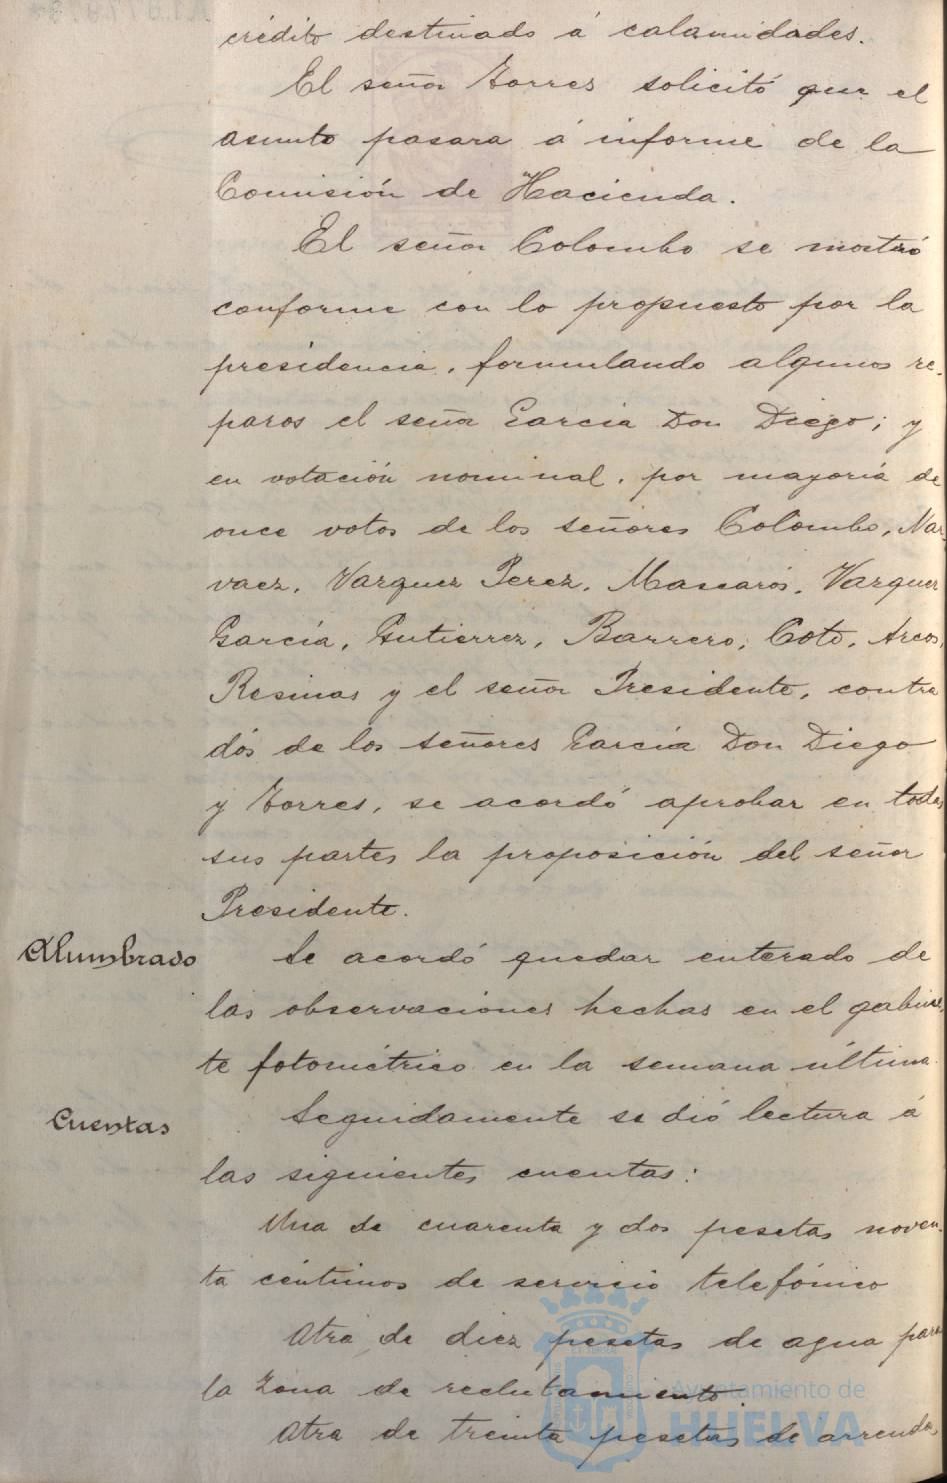 crédito destinado á calamidades.
El señor Torres solicitó que el
asunto pasara á informe de la
Comisión de Hacienda.
El señor Colombo se mostró
conforme con lo propuesto por la
presidencia, formulando algunos re-
paros el señor García Don Diego; y
en votación nominal, por mayoría de
once votos de los señores Colombo, Nar-
vaez, Vazquez Perez, Mascarós, Vazquez
García, Gutierrez, Barrero, Coto, Arcos,
Resinas y el señor Presidente, contra
dós de los señores García Don Diego
y Torres, se acordó aprobar en todas
sus partes la proposición del señor
Presidente.
Alumbrado
Se acordó quedar enterado de
las observaciones hechas en el gabine-
te fotométrico en la semana última.
Cuentas
Seguidamente se dió lectura á
las siguientes cuentas:
Una de cuarenta y dos pesetas noven-
ta céntimos de servicio telefónico
Otra de diez pesetas de agua para
la Zona de reclutamiento.
Otra de treinta pesetas de arrenda
Ayuntamiento de
HUELVA